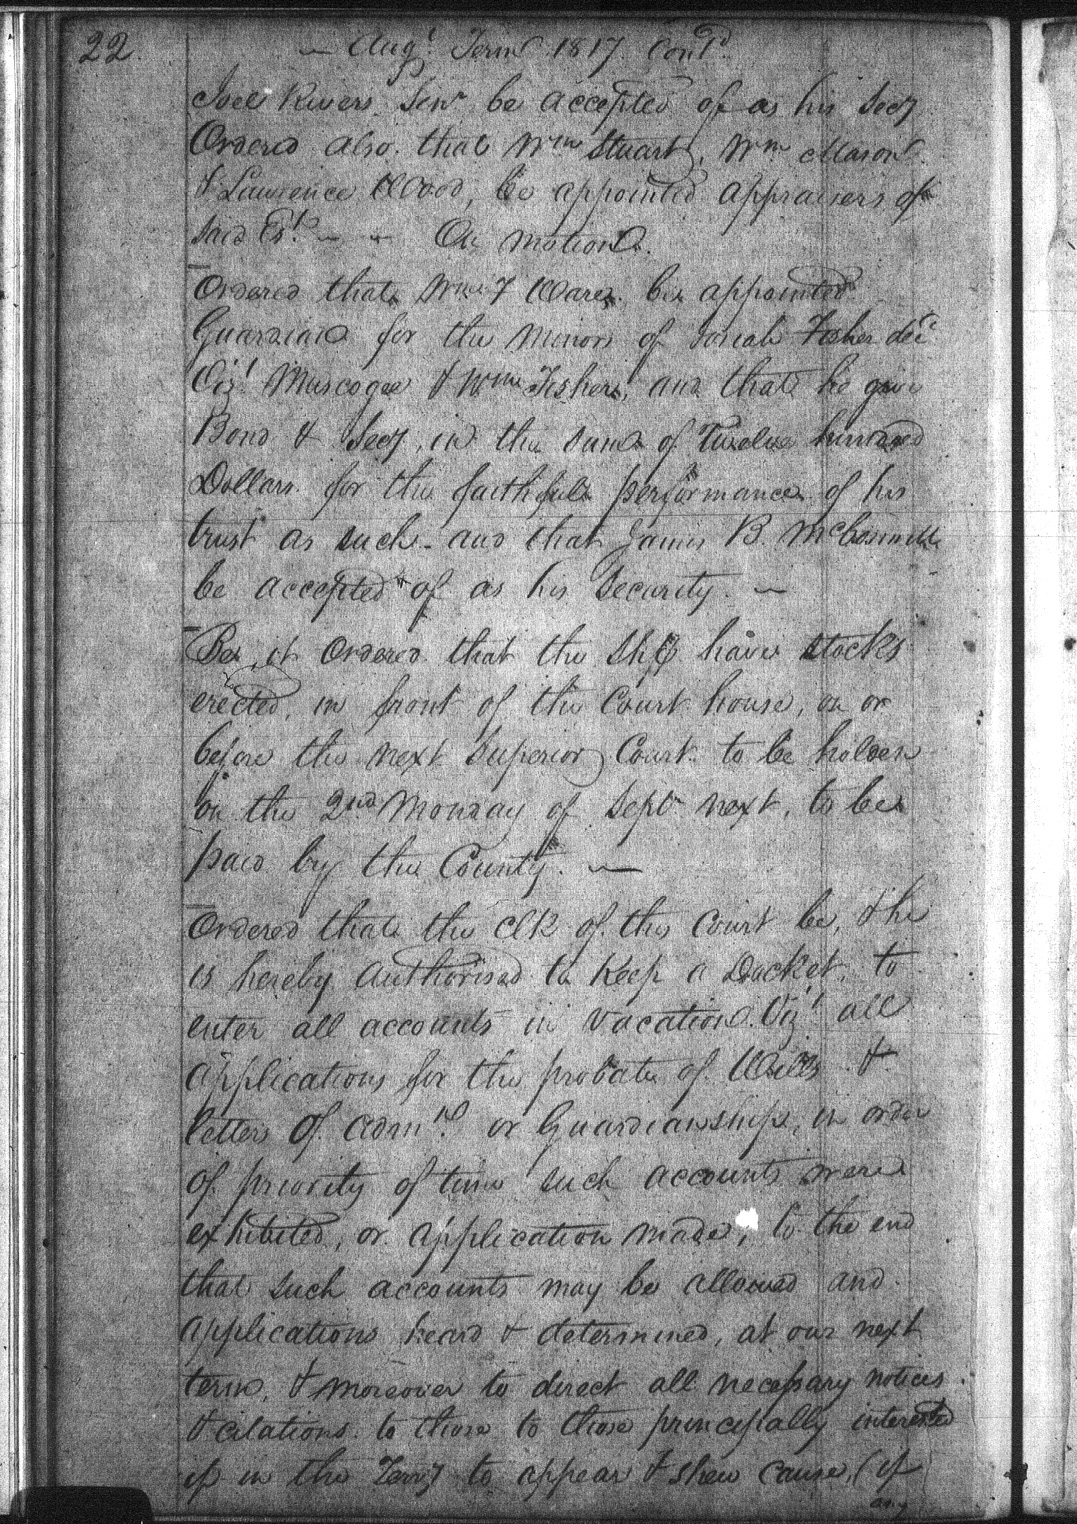 22
— Augt Term 1817 Contd
Joel Rivers Senr be accepted of as his Secy
Ordered also. that Wm Stuart, Wm Mason
& Lawrence Wood, be appointed appraisers of
said Est. — - On motion.
Ordered that Wm T Ware be appointed
Guardian for the minors of Josiah Fisher decd
Vizt Muscogee & Wm Fishers, and that he give
Bond & Secy, in the sum of Twelve hundred
Dollars for the faithful performance of his
trust as such - and that James B. McConnell
be accepted of as his Security. —
Be it Ordered that the Shff have Stocks
erected, in front of the Court house, on or
before the next Superior Court to be holden
on the 2nd Monday of Sept next, to be
paid by the County. —
Ordered that the Clk of this Court be, & he
is hereby authorised to keep a Docket, to
enter all accounts in vacation. Vizt all
applications for the probate of Wills &
letters of admn. or Guardianship, in order
of priority of time such accounts were
exhibited, or application made, to the end
that such accounts may be allowed and
applications heard & determined, at our next
term, & moreover to direct all necessary notices
& citations to those to those principally interested
if in the Terry to appear & shew cause, (if
any